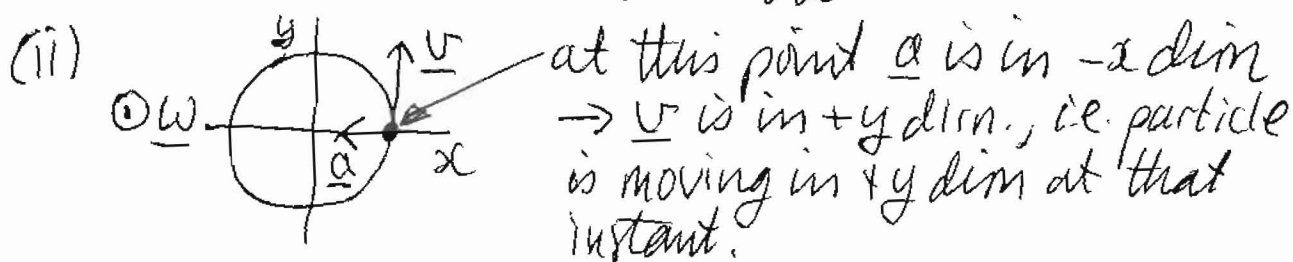 (ii)
y
v
⊙ω
a
x
at this point a is in -x dirn
→ v is in +y dirn., i.e. particle
is moving in +y dirn at that
instant.